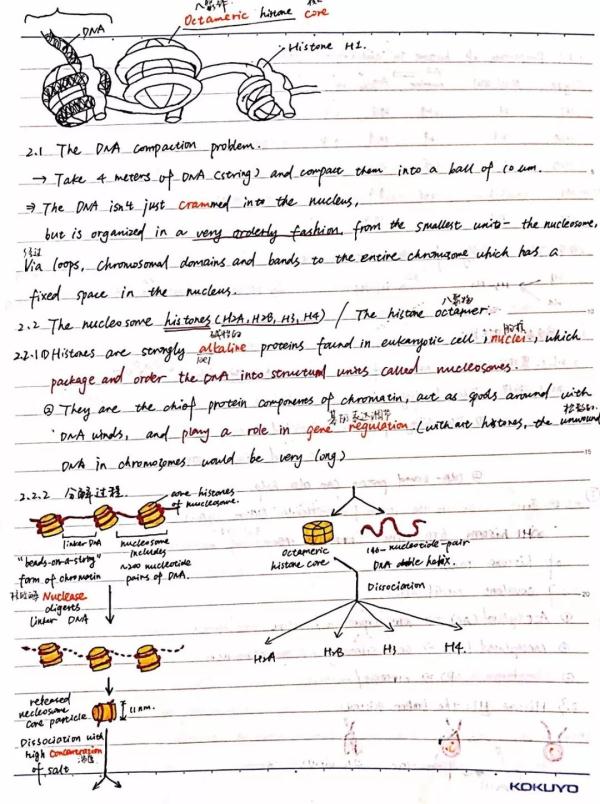 八聚体
Octameric histone core
DNA
Histone H1.
2.1 The DNA compaction problem.
→ Take 4 meters of DNA (string) and compact them into a ball of 10 um.
⇒ The DNA isn't just crammed into the nucleus,
but is organized in a very orderly fashion, from the smallest units - the nucleosome,
经过
Via loops, chromosomal domains and bands to the entire chromosome which has a
fixed space in the nucleus.
八聚物
2.2 The nucleosome histones (H2A, H2B, H3, H4) / The histone octamer.
碱性的
2.2.1① Histones are strongly alkaline proteins found in eukaryotic cell nuclei, which
package and order the DNA into structural units called nucleosomes.
② They are the chief protein components of chromatin, act as spools around with
基因表达调节
DNA winds, and play a role in gene regulation. (without histones, the unwound
DNA in chromosomes would be very long)
15
2.2.2 分解过程.
core histones
of nucleosome.
linker DNA
nucleosome
includes
~200 nucleotide
pairs of DNA.
"beads-on-a-string"
form of chromatin
核酸酶 Nuclease
digests
linker DNA
released
necleosome
core particle
11 nm.
Dissociation with
high Concentration
浓度
of salt
octameric
histone core
146-nucleotide-pair
DNA double helix.
Dissociation
20
H2A H2B H3 H4.
KOKUYO